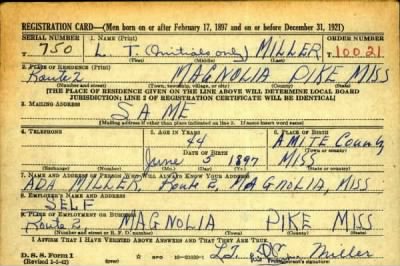 REGISTRATION CARD—(Men born on or after February 17, 1897 and on or before December 31, 1921)
SERIAL NUMBER 1. NAME (Print) ORDER NUMBER
T 750 L. T. (Initials only) MILLER T10021
(First) (Middle) (Last)
2. PLACE OF RESIDENCE (Print)
Route 2 MAGNOLIA PIKE MISS
(Number and street) (Town, township, village, or city) (County) (State)
[THE PLACE OF RESIDENCE GIVEN ON THE LINE ABOVE WILL DETERMINE LOCAL BOARD
JURISDICTION; LINE 2 OF REGISTRATION CERTIFICATE WILL BE IDENTICAL]
3. MAILING ADDRESS
SAME
[Mailing address if other than place indicated on line 2. If same insert word same]
4. TELEPHONE 5. AGE IN YEARS 6. PLACE OF BIRTH
44 AMITE County
DATE OF BIRTH (Town or county)
June 3 1897 MISS
(Exchange) (Number) (Mo.) (Day) (Yr.) (State or country)
7. NAME AND ADDRESS OF PERSON WHO WILL ALWAYS KNOW YOUR ADDRESS
ADA MILLER, Route 2, MAGNOLIA, MISS
8. EMPLOYER'S NAME AND ADDRESS
SELF
9. PLACE OF EMPLOYMENT OR BUSINESS
Route 2 MAGNOLIA PIKE MISS
(Number and street or R. F. D. number) (Town) (County) (State)
I AFFIRM THAT I HAVE VERIFIED ABOVE ANSWERS AND THAT THEY ARE TRUE.
D. S. S. Form 1 Miller